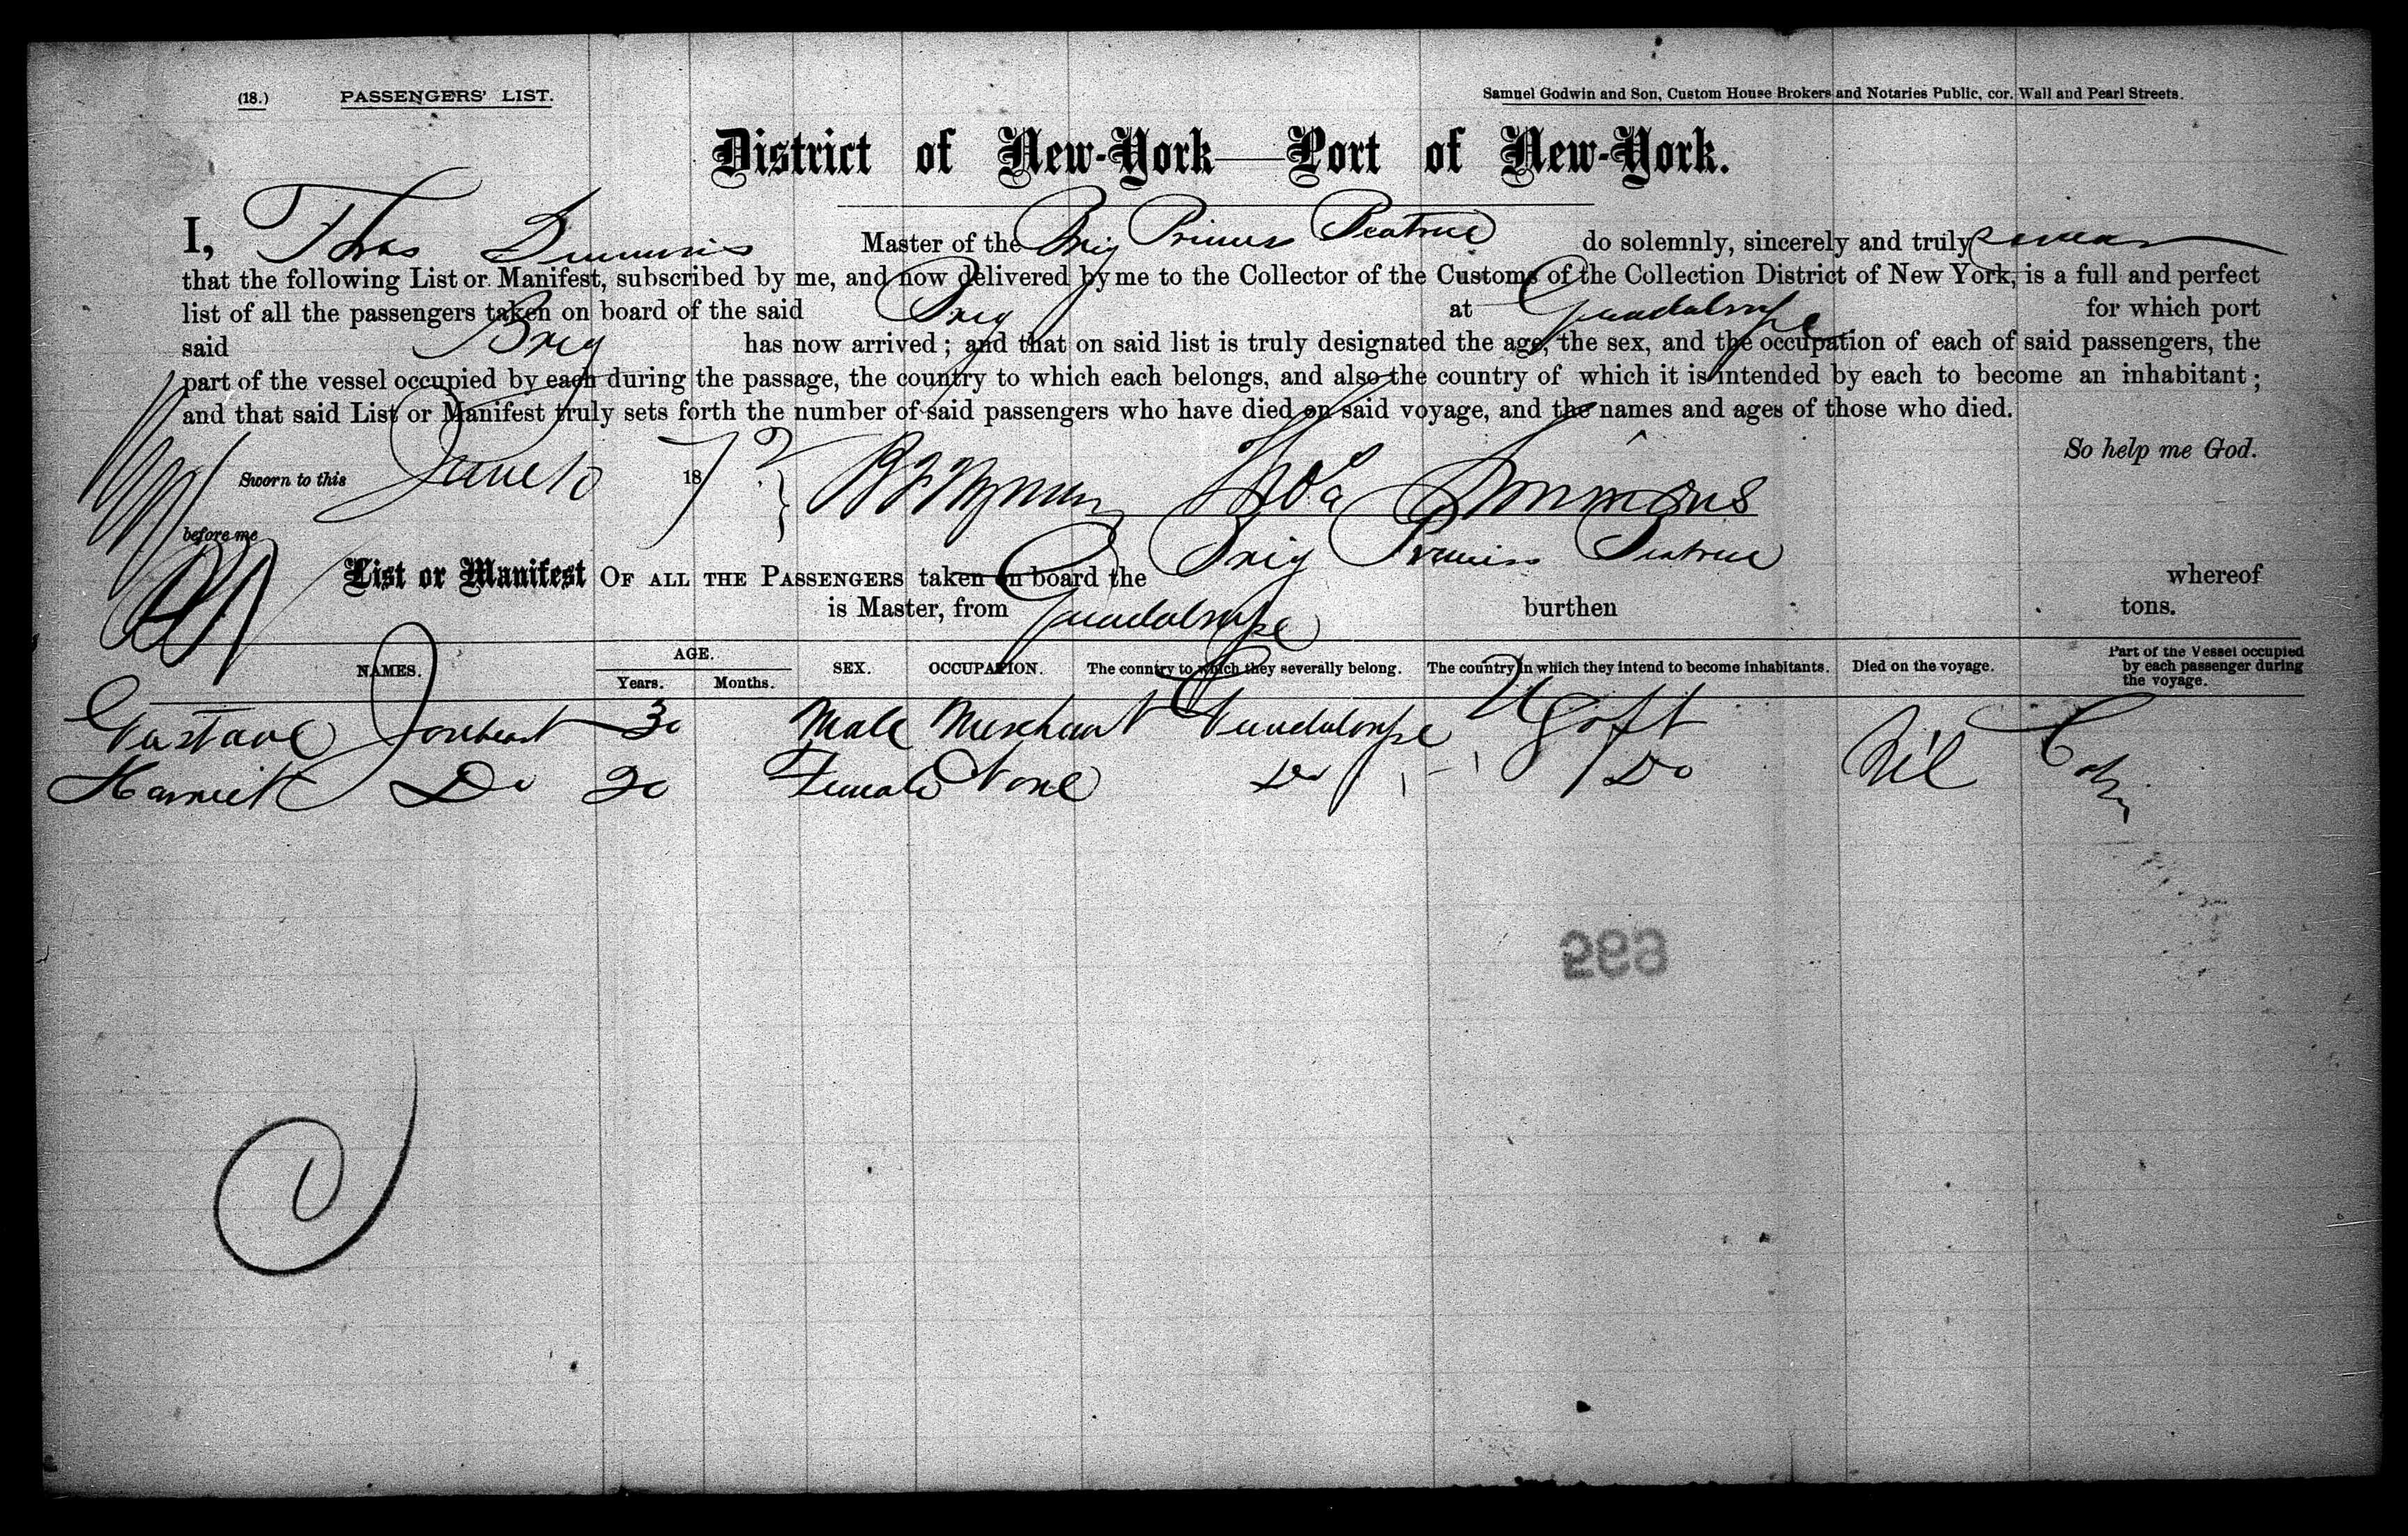 (18.) PASSENGERS' LIST. Samuel Godwin and Son, Custom House Brokers and Notaries Public, cor. Wall and Pearl Streets.
District of New-York—Port of New-York.
I, Thos Simmons Master of the Brig Princess Beatrice do solemnly, sincerely and truly swear
that the following List or Manifest, subscribed by me, and now delivered by me to the Collector of the Customs of the Collection District of New York, is a full and perfect
list of all the passengers taken on board of the said Brig at Guadaloupe for which port
said Brig has now arrived; and that on said list is truly designated the age, the sex, and the occupation of each of said passengers, the
part of the vessel occupied by each during the passage, the country to which each belongs, and also the country of which it is intended by each to become an inhabitant;
and that said List or Manifest truly sets forth the number of said passengers who have died on said voyage, and the names and ages of those who died.
So help me God.
Sworn to this June 10 187 Thos Simmons
before me
List or Manifest OF ALL THE PASSENGERS taken on board the Brig Princess Beatrice whereof
is Master, from Guadaloupe burthen tons.
NAMES. AGE. Years. Months. SEX. OCCUPATION. The country to which they severally belong. The country in which they intend to become inhabitants. Died on the voyage. Part of the Vessel occupied by each passenger during the voyage.
Gustave 30 Male Merchant Guadaloupe
Harriet Do 20 Female None Do Do Nil Cabin
293